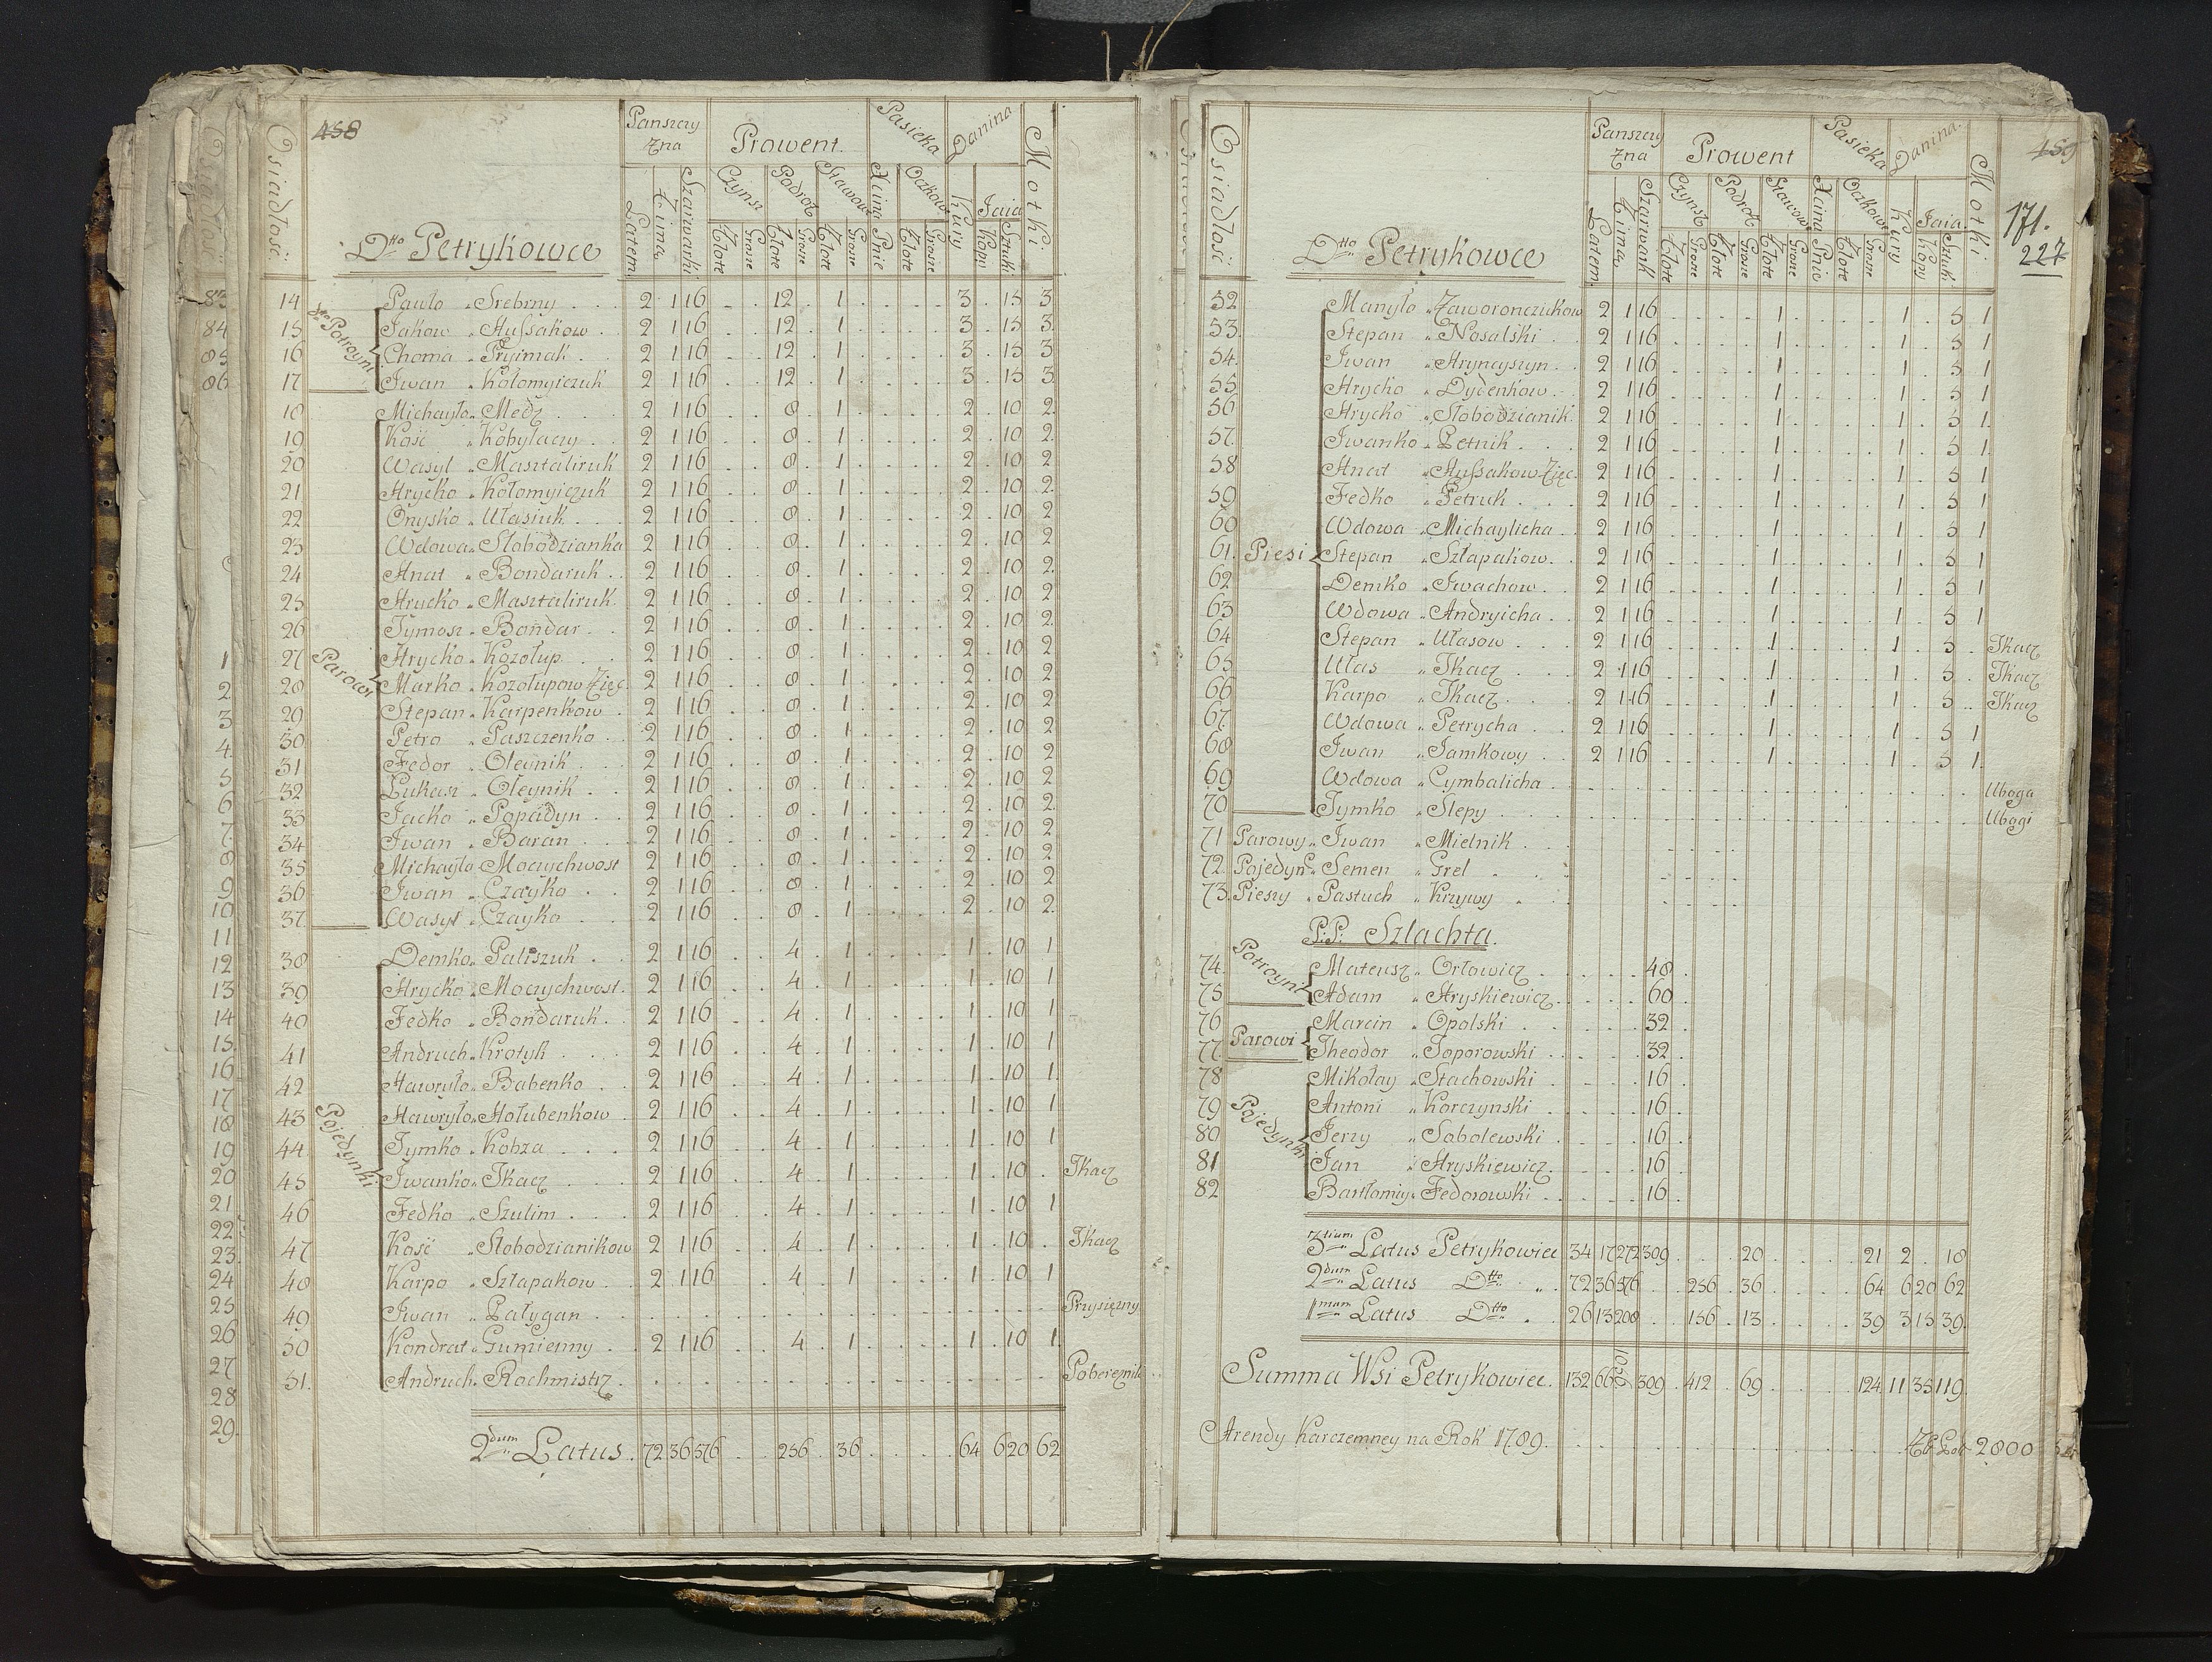 458
Osiadłość
Panszczyzna Prowent. Pasieka Danina Motki
Latem Zimą Szarwarki Czynsz Podroż Stawow Zcina Oczkowe Kury Jaia
Złote Grosze Złote Grosze Złote Grosze Pnie Złote Grosze Kopy Sztuki
Dtto Petrykowce
14 Pawło „ Srebrny 2 1 16 12 1 3 15 3
15 Jakow „ Hussakow 2 1 16 12 1 3 15 3
dto Potroyni
16 Choma „ Pryimak 2 1 16 12 1 3 15 3
17 Jwan „ Kołomyiczuk 2 1 16 12 1 3 15 3
18 Michayło „ Medz 2 1 16 8 1 2 10 2
19 Kość „ Kobylaczy 2 1 16 8 1 2 10 2
20 Wasyl „ Masztaliruk 2 1 16 8 1 2 10 2
21 Hrycko „ Kołomyiczuk 2 1 16 8 1 2 10 2
22 Onysko „ Ułasiuk 2 1 16 8 1 2 10 2
23 Wdowa „ Słobodzianka 2 1 16 8 1 2 10 2
24 Hnat „ Bondaruk 2 1 16 8 1 2 10 2
25 Hrycko „ Masztaliruk 2 1 16 8 1 2 10 2
26 Tymosz „ Bondar 2 1 16 8 1 2 10 2
27 Parowi Hrycko „ Kozołup 2 1 16 8 1 2 10 2
28 Marko „ Kozołupow Zięć 2 1 16 8 1 2 10 2
29 Stepan „ Karpenkow 2 1 16 8 1 2 10 2
30 Petro „ Paszczenko 2 1 16 8 1 2 10 2
31 Fedor „ Oleynik 2 1 16 8 1 2 10 2
32 Łukasz „ Oleynik 2 1 16 8 1 2 10 2
33 Jacko „ Popadyn 2 1 16 8 1 2 10 2
34 Jwan „ Baran 2 1 16 8 1 2 10 2
35 Michayło „ Moczychwost 2 1 16 8 1 2 10 2
36 Jwan „ Czayko 2 1 16 8 1 2 10 2
37 Wasyl „ Czayko 2 1 16 8 1 2 10 2
38 Demko „ Paliszuk 2 1 16 4 1 1 10 1
39 Hrycko „ Moczychwost 2 1 16 4 1 1 10 1
40 Fedko „ Bondaruk 2 1 16 4 1 1 10 1
41 Andruch „ Krotyk 2 1 16 4 1 1 10 1
42 Hawryło „ Babenko 2 1 16 4 1 1 10 1
43 Pojedynki Hawryło „ Hołubenkow 2 1 16 4 1 1 10 1
44 Tymko „ Kobza 2 1 16 4 1 1 10 1
45 Jwanko „ Tkacz 2 1 16 4 1 1 10 Tkacz
46 Fedko „ Szulim 2 1 16 4 1 1 10 1
47 Kość „ Słobodzianikow 2 1 16 4 1 1 10 Tkacz
48 Karpo „ Szłapakow 2 1 16 4 1 1 10 1
49 Jwan „ Pałygan Przysiężny
50 Kondrat „ Gumienny 2 1 16 4 1 1 10 1
51 Andruch „ Rochmistrz Pobereznik
2dum Latus 72 36 576 256 36 64 6 20 62
459
171.
227
Osiadłość
Panszczyzna Prowent Pasieka Danina. Motki
Latem Zimą Szarwark Czynsz Podroż Stawow Zcina Oczkowe Kury Jaia
Złote Grosze Złote Grosze Złote Grosze Pnie Złote Grosze Kopy Sztuki
Dtto Petrykowce
52 Manyło „ Zaworonczukow 2 1 16 1 1 5 1
53 Stepan „ Nosalski 2 1 16 1 1 5 1
54 Jwan „ Hryncyszyn 2 1 16 1 1 5 1
55 Hrycko „ Dydenkow 2 1 16 1 1 5 1
56 Hrycko „ Słobodzianik 2 1 16 1 1 5 1
57 Jwanko „ Letnik 2 1 16 1 1 5 1
58 Hnat „ Hussakow Zięć 2 1 16 1 1 5 1
59 Fedko „ Petruk 2 1 16 1 1 5 1
60 Wdowa „ Michaylicha 2 1 16 1 1 5 1
61 Piesi Stepan „ Szłapakow 2 1 16 1 1 5 1
62 Demko „ Jwachow 2 1 16 1 1 5 1
63 Wdowa „ Andryicha 2 1 16 1 1 5 1
64 Stepan „ Ułasow 2 1 16 1 1 5 Tkacz
65 Ułas „ Tkacz 2 1 16 1 1 5 Tkacz
66 Karpo „ Tkacz 2 1 16 1 1 5 Tkacz
67 Wdowa „ Petrycha 2 1 16 1 1 5 1
68 Jwan „ Jamkowy 2 1 16 1 1 5 1
69 Wdowa „ Cymbalicha Uboga
70 Tymko „ Slepy Ubogi
71 Parowy „ Jwan „ Mielnik
72 Pojedyń „ Semen „ Grel
73 Pieszy „ Pastuch „ Krzywy
P.P. Szlachta.
74 Potroyni Mateusz „ Orłowicz 48
75 Adam „ Hryskiewicz 60
76 Parowi Marcin „ Opolski 32
77 Theodor „ Toporowski 32
78 Mikołay „ Stachowski 16
79 Pojedynki Antoni „ Korczynski 16
80 Jerzy „ Sobolewski 16
81 Jan „ Hryskiewicz 16
82 Bartłomiy „ Fedorowski 16
3tium Latus Petrykowiec 34 17 272 309 20 21 2 18
2dum Latus Dtto 72 36 576 256 36 64 6 20 62
1mum Latus Dtto 26 13 208 156 13 39 3 15 39
Summa Wsi Petrykowiec 132 66 1056 309 412 69 124 11 35 119
Arendy Karczemney na Rok 1789. 2800
83
84
85
86
1
2
3
4
5
6
7
8
9
10
11
12
13
14
15
16
17
18
19
20
21
22
23
24
25
26
27
28
29